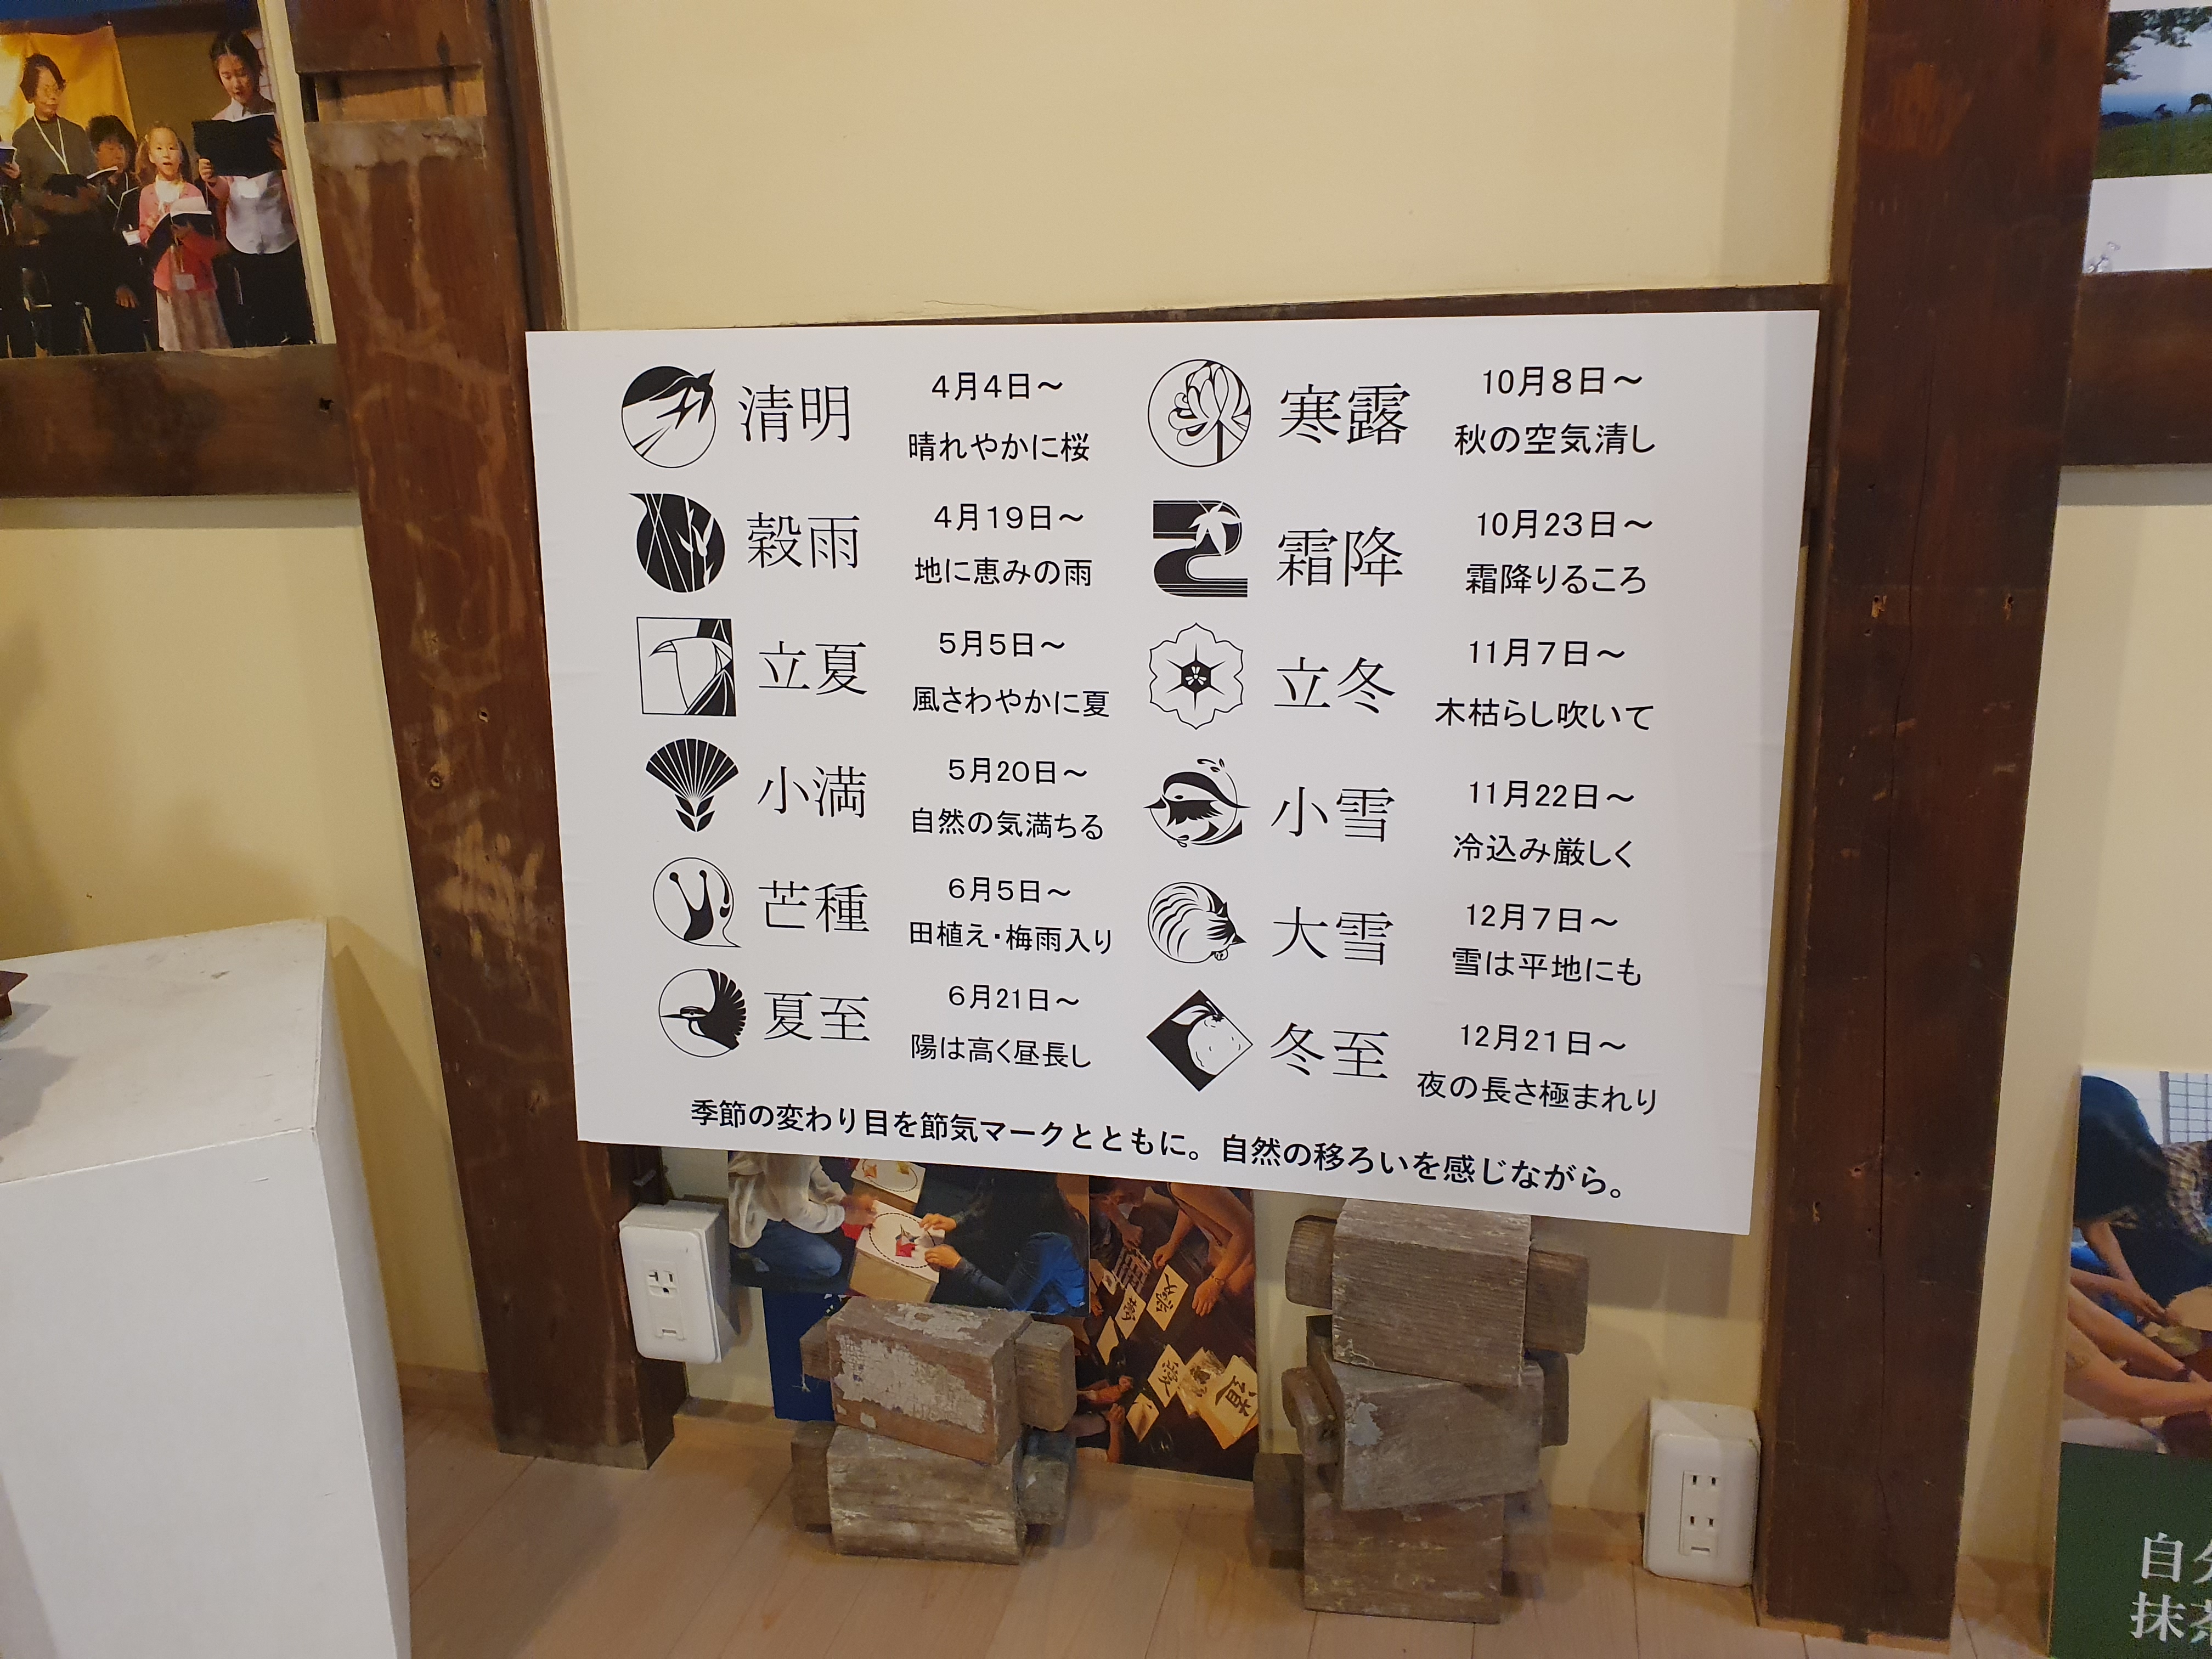 清明
4月4日～
晴れやかに桜
穀雨
4月19日～
地に恵みの雨
立夏
5月5日～
風さわやかに夏
小満
5月20日～
自然の気満ちる
芒種
6月5日～
田植え・梅雨入り
夏至
6月21日～
陽は高く昼長し
寒露
10月8日～
秋の空気清し
霜降
10月23日～
霜降りるころ
立冬
11月7日～
木枯らし吹いて
小雪
11月22日～
冷込み厳しく
大雪
12月7日～
雪は平地にも
冬至
12月21日～
夜の長さ極まれり
季節の変わり目を節気マークとともに。自然の移ろいを感じながら。
道
自
抹